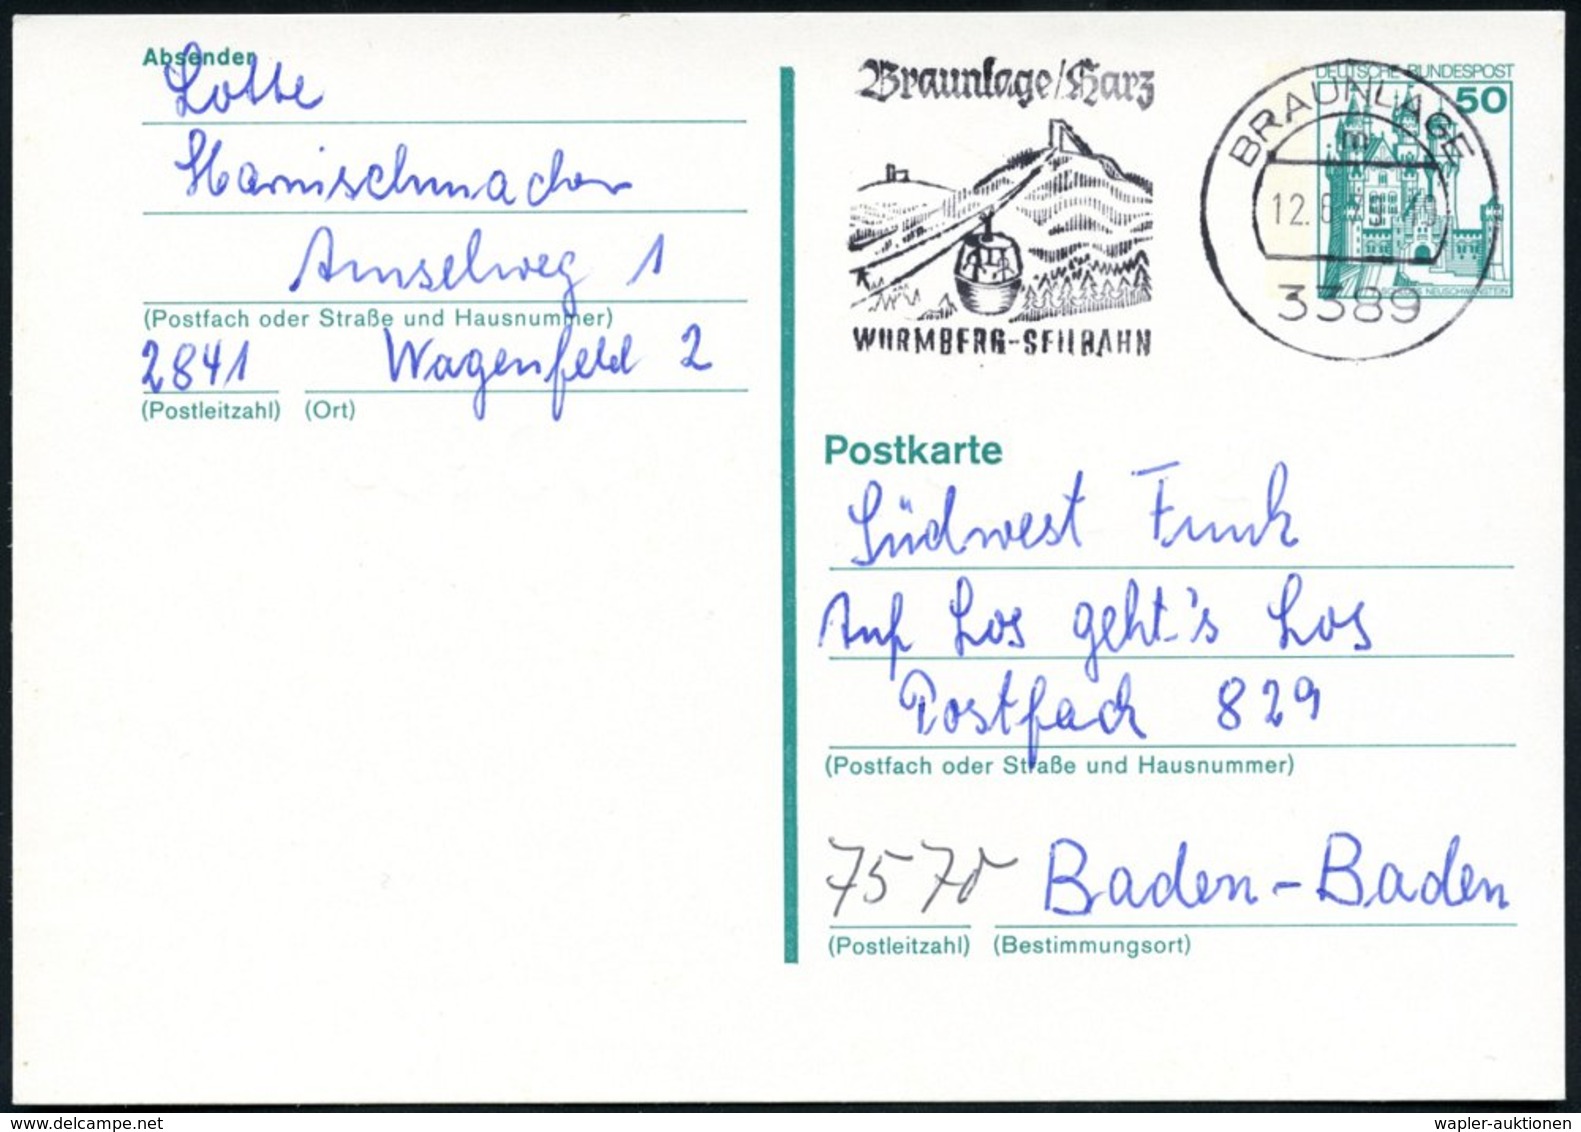 Absender
Lotte
Harnischmacher
Amselweg 1
(Postfach oder Straße und Hausnummer)
2841 Wagenfeld 2
(Postleitzahl) (Ort)
Braunlage/Harz
WURMBERG-SEILBAHN
BRAUNLAGE
m
12.8.79
3389
DEUTSCHE BUNDESPOST
50
NEUSCHWANSTEIN
Postkarte
Südwest Funk
Auf Los geht's Los
Postfach 829
(Postfach oder Straße und Hausnummer)
7570 Baden-Baden
(Postleitzahl) (Bestimmungsort)
wapler-auktionen